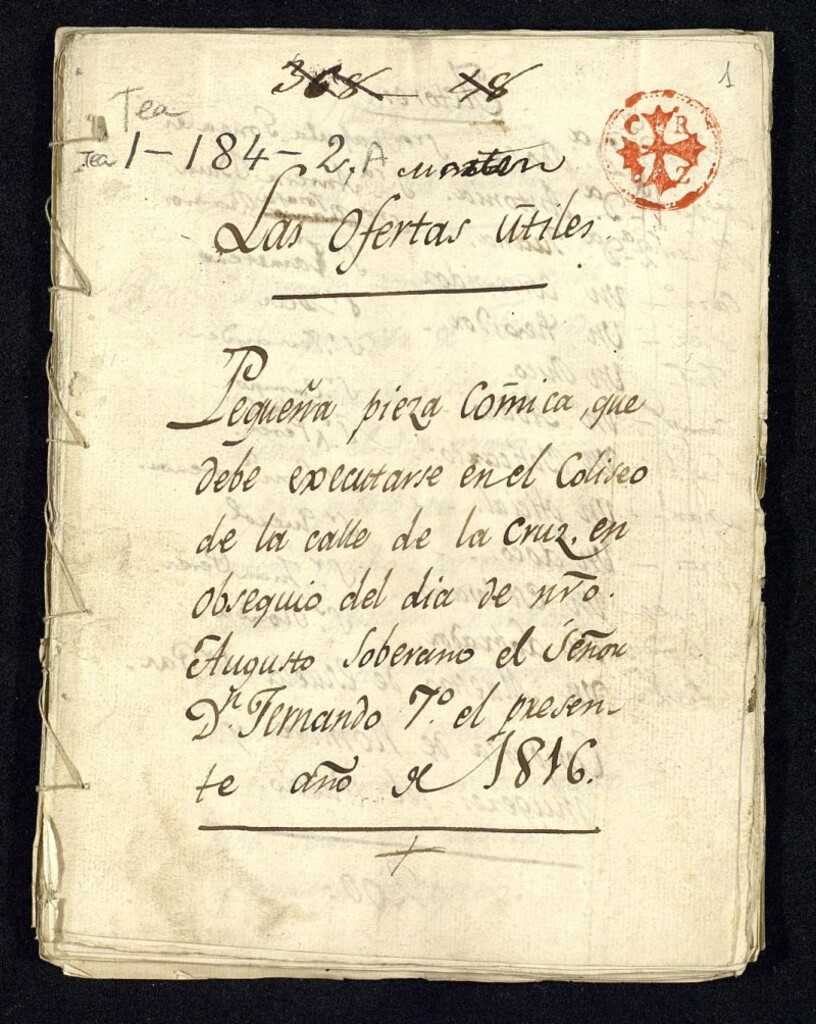 1
Tea
Tea 1-184-2, A
Las Ofertas útiles.
Pequeña pieza Cómica, que
debe executarse en el Coliseo
de la calle de la Cruz, en
obsequio del dia de nrõ.
Augusto Soberano el Señor
Dn. Fernando 7.º el presen-
te año de 1816.
C R
U Z